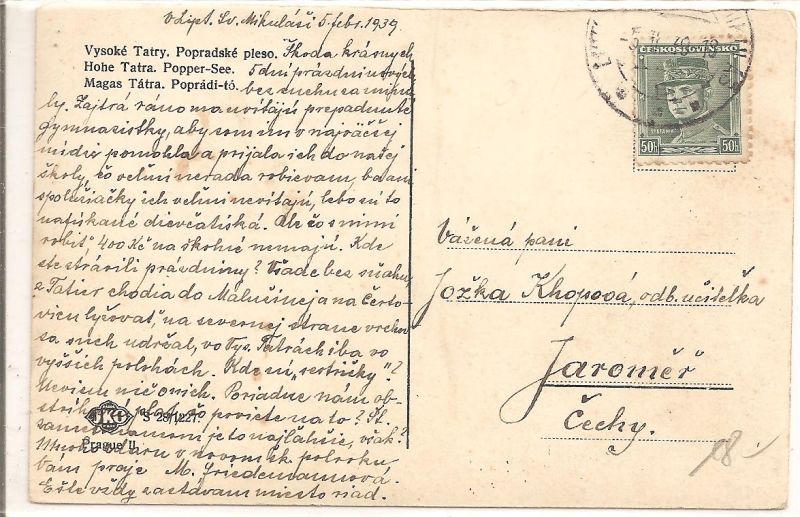 V Lipt. Sv. Mikuláši 5. febr. 1939
Vysoké Tatry. Popradské pleso. Škoda krásnych
Hohe Tatra. Popper-See. 5 dní prázdninových
Magas Tátra. Poprádi-tó. bez snehu sa minu-
ly. Zajtrá ráno ma uvítajú prepadnuté
gymnazistky, aby som im v najväčšej
miere pomohla a prijala ich do našej
školy, čo veľmi nerada robievam, ba ani
spolužiačky ich veľmi nevítajú, lebo sú to
nafúkané dievčatiská. Ale čo s nimi
robiť, 400 Kč na školné nemajú. Kde
ste strávili prázdniny? Všade bez snehu,
z Tatier chodia do Malužinej a na Čerto-
vicu lyžovať, na severnej strane vrchov
sa sneh udržal, vo Vys. Tatrách iba vo
vyšších polohách. Kde sú "sestričky"?
Neviem nič o nich. Poriadne nám ob-
čo poviete na to? Št.
zamestnancami je to najľahšie, však?
v novom šk. polroku
Vám praje M. Friedmannová.
Ešte vždy zastávam miesto riad.
JKO
S 28/1227.
Prague II.
ČESKOSLOVENSKO
ŠTEFÁNIK
50h 50h
Vážená pani
Jožka Khopová, odb. učitelka
Jaroměř
Čechy.
18-